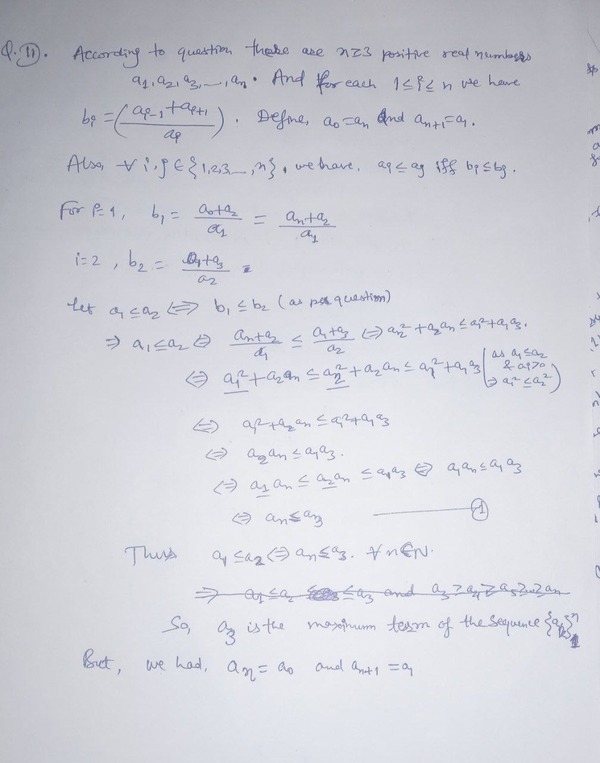 Q. 11. According to question there are n≥3 positive real numbers
a₁, a₂, a₃, ..., aₙ. And for each 1≤i≤n we have
bᵢ = (aᵢ₋₁ + aᵢ₊₁ / aᵢ). Define, a₀=aₙ and aₙ₊₁=a₁.
Also, ∀ i, j ∈ {1,2,3...,n}, we have, aᵢ ≤ aⱼ iff bᵢ ≤ bⱼ.
For i=1, b₁ = (a₀+a₂)/a₁ = (aₙ+a₂)/a₁
i=2, b₂ = (a₁+a₃)/a₂
Let a₁≤a₂ ⇔ b₁≤b₂ (as per question)
⇒ a₁≤a₂ ⇔ (aₙ+a₂)/a₁ ≤ (a₁+a₃)/a₂ ⇔ a₂² + a₂aₙ ≤ a₁² + a₁a₃.
⇔ a₁² + a₂aₙ ≤ a₂² + a₂aₙ ≤ a₁² + a₁a₃ (as a₁≤a₂ & aᵢ>0 ⇒ a₁²≤a₂²)
⇔ a₁² + a₂aₙ ≤ a₁² + a₁a₃
⇔ a₂aₙ ≤ a₁a₃.
⇔ a₁aₙ ≤ a₂aₙ ≤ a₁a₃ ⇔ a₁aₙ ≤ a₁a₃
⇔ aₙ ≤ a₃ ——— 1
Thus a₁≤a₂ ⇔ aₙ≤a₃. ∀ n∈N.
So, a₃ is the maximum term of the sequence
But, we had, aₙ = a₀ and aₙ₊₁ = a₁